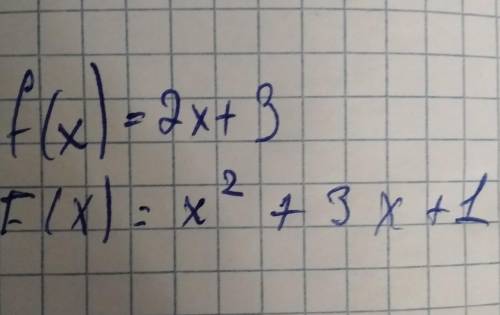 f(x) = 2x + 3
F(x) = x² + 3x + 1